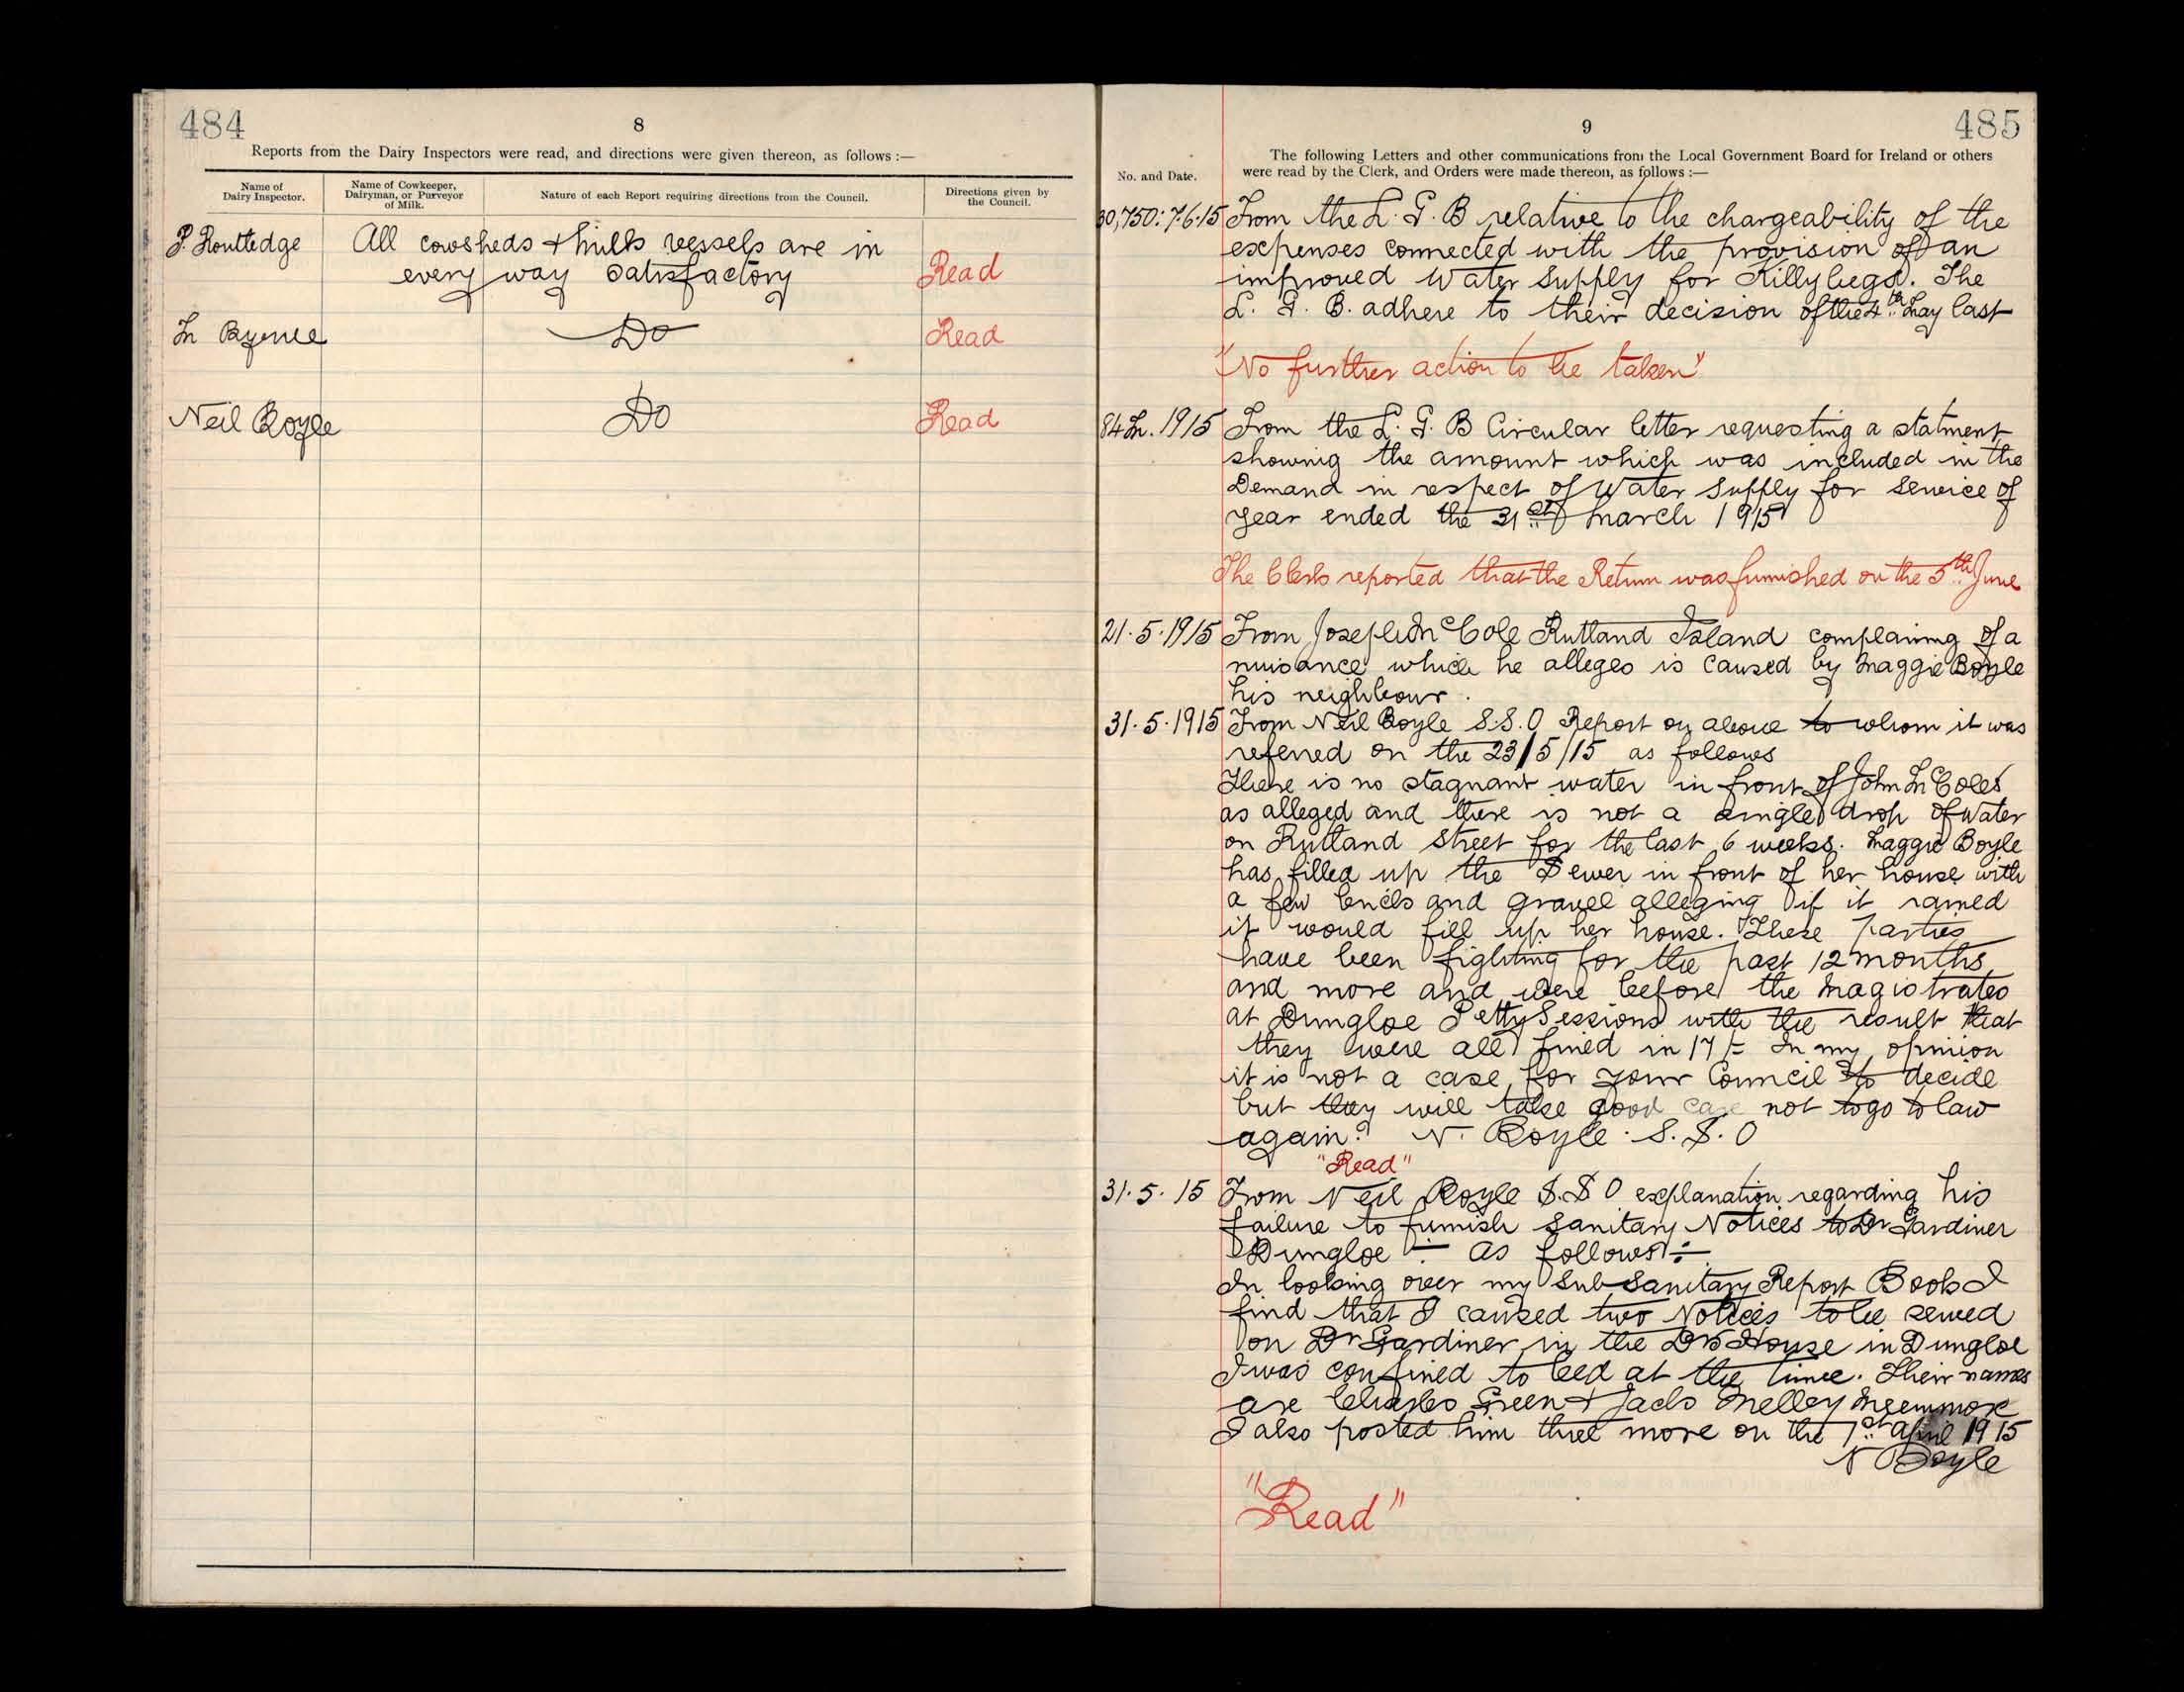 484
8
Reports from the Dairy Inspectors were read, and directions were given thereon, as follows :—
Name of Dairy Inspector.
Name of Cowkeeper, Dairyman, or Purveyor of Milk.
Nature of each Report requiring directions from the Council.
Directions given by the Council.
P. Routledge All cowsheds + milk vessels are in
every way satisfactory Read
M Byrne Do Read
Neil Boyle Do Read
9
485
No. and Date.
The following Letters and other communications from the Local Government Board for Ireland or others
were read by the Clerk, and Orders were made thereon, as follows :—
30,750: 7.6.15 From the L. G. B relative to the chargeability of the
expenses connected with the provision of an
improved water supply for Killybegs. The
L. G. B. adhere to their decision of the 4th May last
"No further action to be taken"
84 M. 1915 From the L. G. B Circular letter requesting a statment
showing the amount which was included in the
Demand in respect of Water Supply for Service of
year ended the 31st March 1915
The Clerk reported that the Return was furnished on the 5th June
21.5.1915 From Joseph McCole Rutland Island complaining of a
nuisance which he alleges is caused by Maggie Boyle
his neighbour.
31.5.1915 From Neil Boyle S.S.O Report on above to whom it was
referred on the 23/5/15 as follows
There is no stagnant water in front of John McColes
as alleged and there is not a single drop of water
on Rutland Street for the last 6 weeks. Maggie Boyle
has filled up the Sewer in front of her house with
a few and gravel alleging if it rained
it would fill up her house. These Parties
have been fighting for the past 12 months
and more and were before the Magistrates
at Dungloe Petty Sessions with the result that
they were all fined in 17/= In my opinion
it is not a case for your Council to decide
but they will take good care not to go to law
again. N. Boyle. S.S.O
"Read"
31.5.15 From Neil Boyle S.S O explanation regarding his
failure to furnish Sanitary Notices to Dr Gardiner
Dungloe — as follows:—
In looking over my Sub-Sanitary Report Book I
find that I caused two Notices to be served
on Dr Gardiner in the Drs House in Dungloe
I was confined to bed at the time. Their names
are Charles Green + Jack Melley Meenmore
I also posted him three more on the 1st April 1915
N Boyle
"Read"